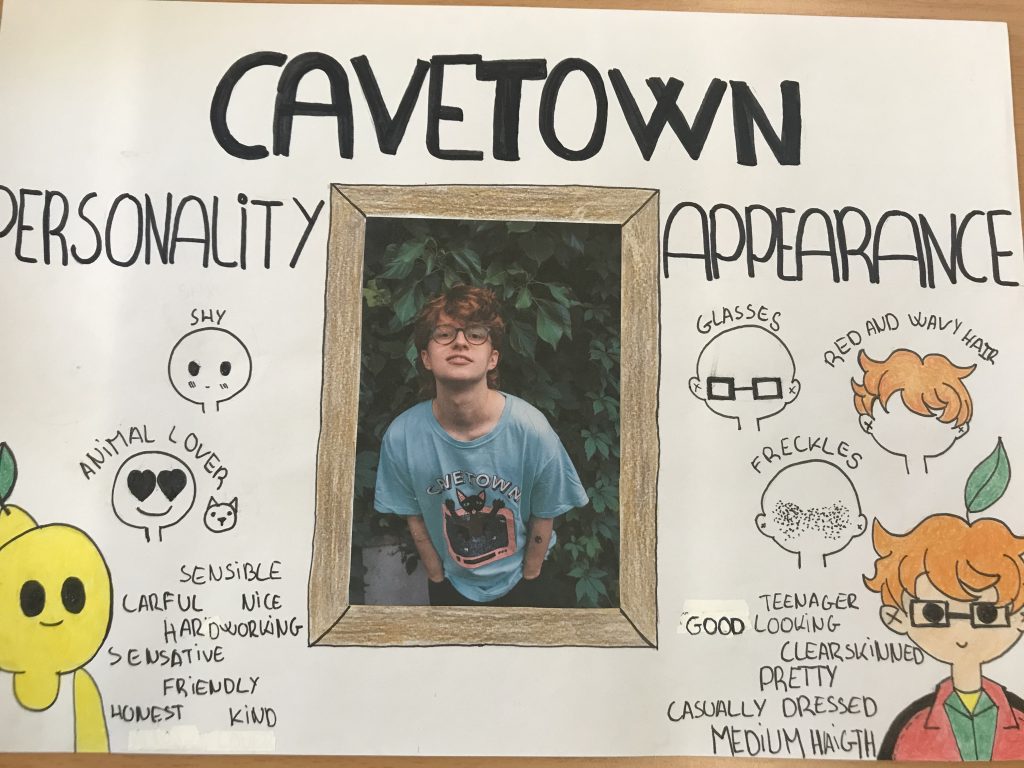 CAVETOWN
PERSONALITY
SHY
ANIMAL LOVER
SENSIBLE
CARFUL NICE
HARDWORKING
SENSATIVE
FRIENDLY
HONEST KIND
CAVETOWN
APPEARANCE
GLASSES
RED AND WAVY HAIR
FRECKLES
TEENAGER
GOOD LOOKING
CLEARSKINNED
PRETTY
CASUALLY DRESSED
MEDIUM HAIGTH